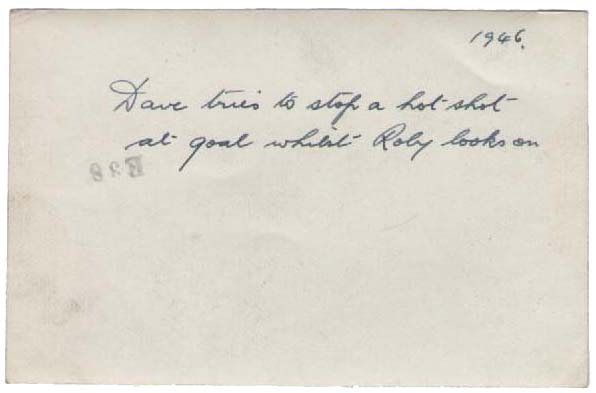 1946.
Dave tries to stop a hot shot
at goal whilst Roby looks on